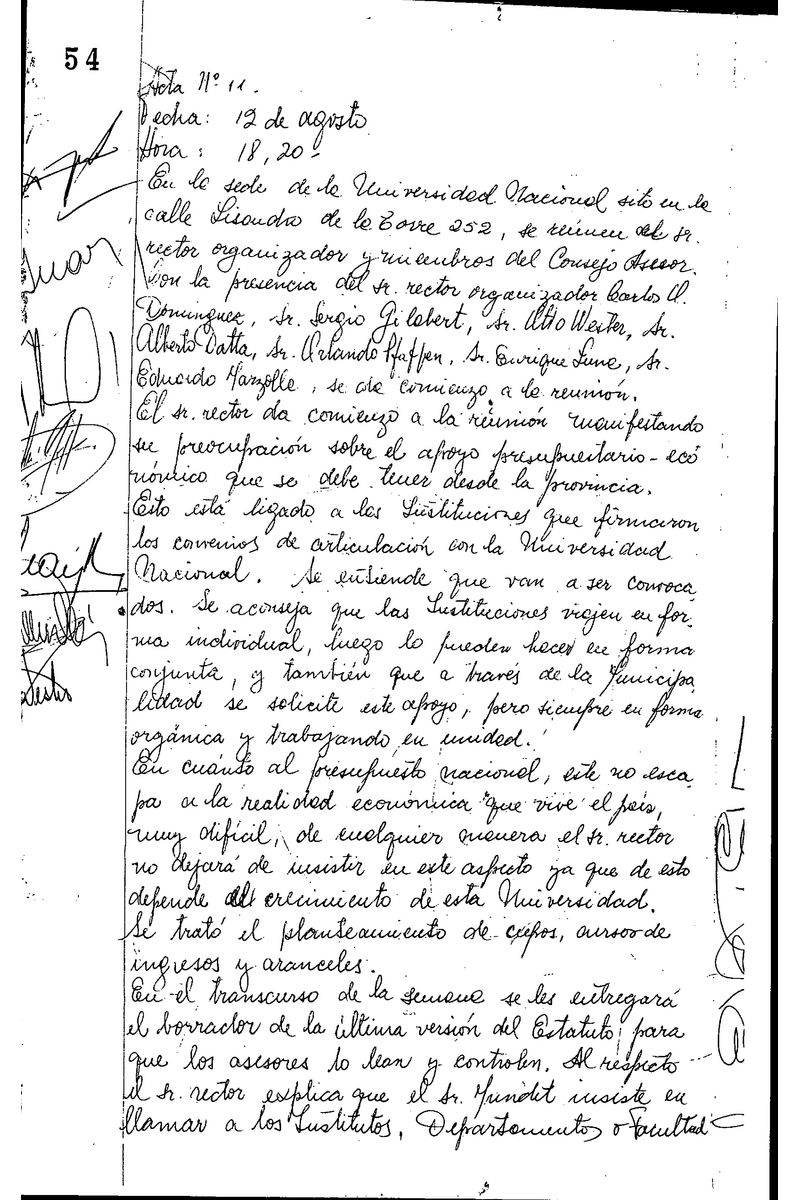 54
Acta Nº 11.
Fecha: 12 de agosto
Hora: 18,20-
En la sede de la Universidad Nacional sito en la
calle Lisandro de la Torre 252, se reúnen el sr.
rector organizador y miembros del Consejo Asesor.
Con la presencia del sr. rector organizador Carlos A.
Dominguez, Sr. Sergio Gilabert, Sr. Otto Wester, Sr.
Alberto Datta, Sr. Orlando Pfaffen, Sr. Enrique Luna, Sr.
Eduardo Marzolla, se da comienzo a la reunión.
El sr. rector da comienzo a la reunión manifestando
su preocupación sobre el apoyo presupuestario-eco
nómico que se debe tener desde la provincia.
Esto está ligado a las Instituciones que firmaron
los convenios de articulación con la Universidad
Nacional. Se entiende que van a ser convoca
dos. Se aconseja que las Instituciones viajen en for-
ma individual, luego lo pueden hacer en forma
conjunta, y también que a través de la Municipa
lidad se solicite este apoyo, pero siempre en forma
orgánica y trabajando en unidad.
En cuánto al presupuesto nacional, este no esca
pa a la realidad económica que vive el país,
muy difícil, de cualquier manera el sr. rector
no dejará de insistir en este aspecto ya que de esto
depende el crecimiento de esta Universidad.
Se trató el planteamiento de cupos, cursos de
ingresos y aranceles.
En el transcurso de la semana se les entregará
el borrador de la última versión del Estatuto, para
que los asesores lo lean y controlen. Al respecto
el sr. rector explica que el Sr. Mundet insiste en
llamar a los Institutos, Departamentos o Facultad